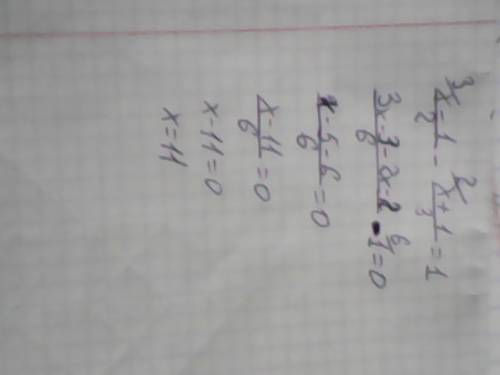 ³x-1/2 - ²x+1/3 = 1
3x-3-2x-2/6 - ⁶1 = 0
x-5-6/6 = 0
x-11/6 = 0
x-11=0
x=11